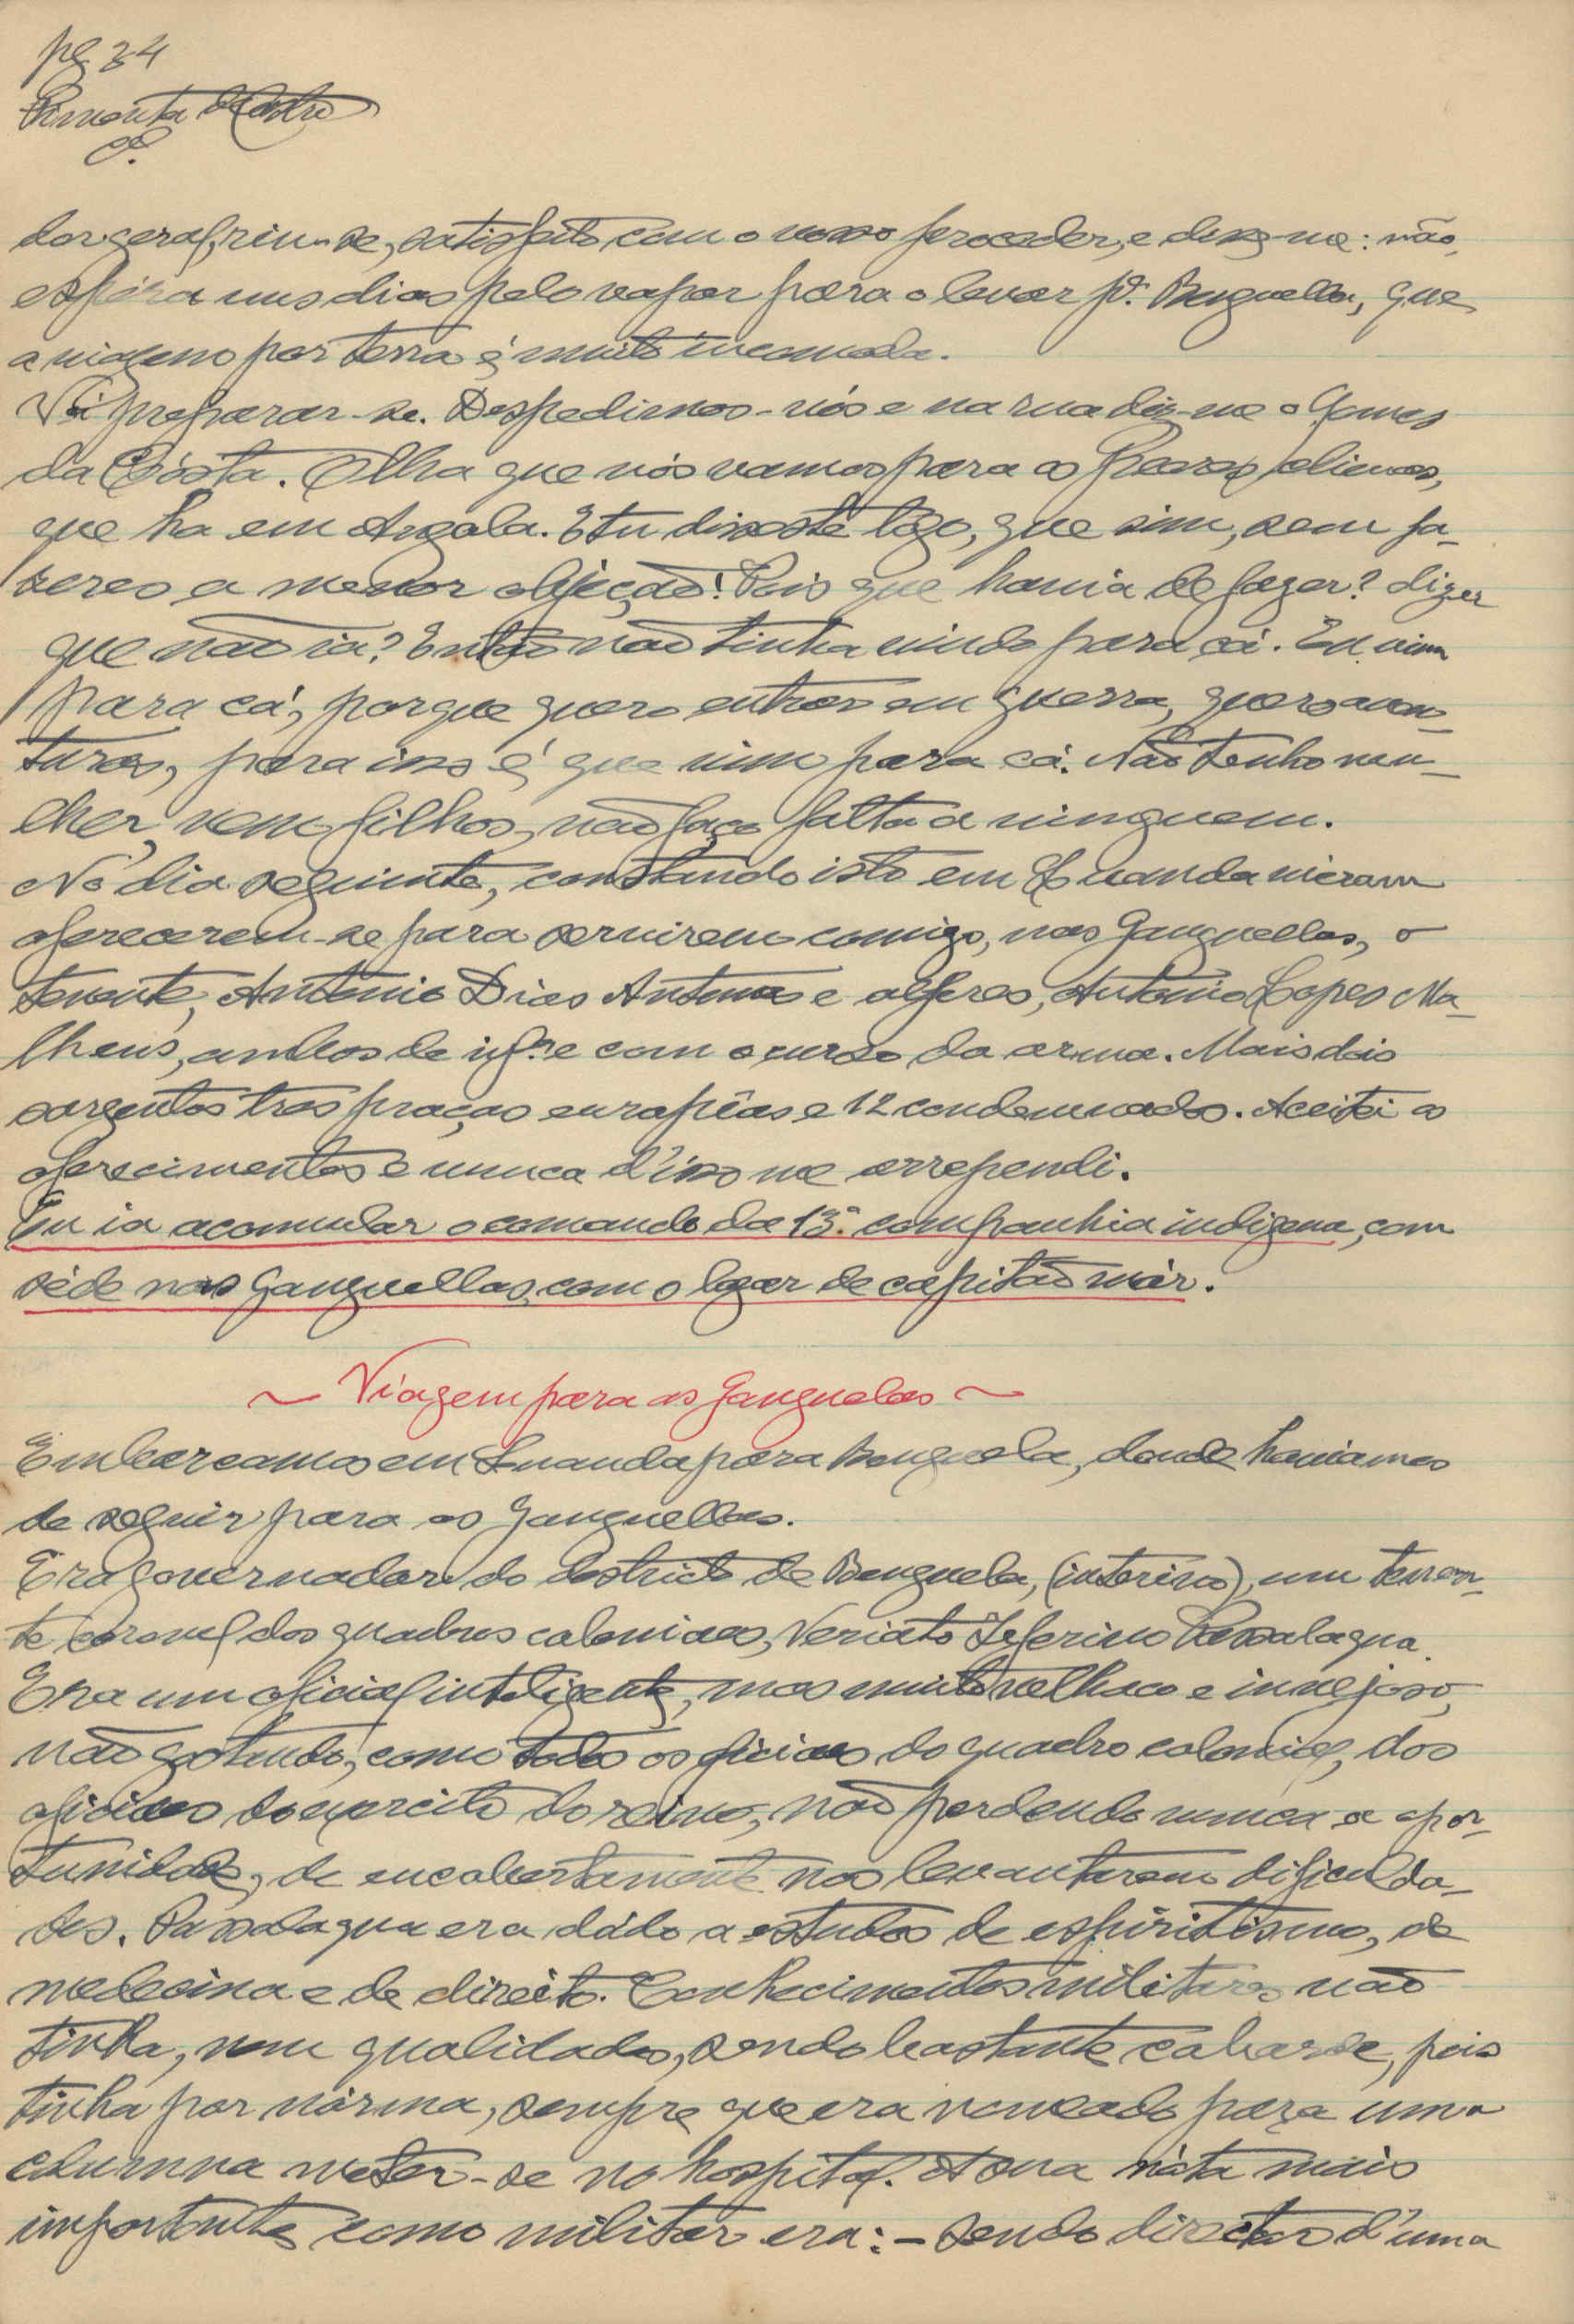 pg 34
Pimenta de Castro
dor geral, riu-se, satisfeito com o nosso proceder, e disse-me: não,
espéra uns dias pelo vapor para o levar pª. Benguella, que
a viagem por terra é muito incomoda.
Vá preparar-se. Despedimos-nós e na rua diz-me o Gomes
da Cósta. Olha que nós vamos para os peores climas,
que ha em Angola. E tu disseste lógo, que sim, sem fa-
zeres a menor objéção! Pois que havia de fazer? dizer
que não ia? Então não tinha vindo para cá. Eu vim
para cá, porque quero entrar em guerra, quero aven-
turas, para isso é que vim para cá. Não tenho mu-
lher, nem filhos, não faço falta a ninguem.
No dia seguinte, constando isto em Luanda vieram
oferecerem-se para servirem comigo, nas Ganguellas, o
tenente, Antonio Dias Antunes e alferes, Antonio Lopes Ma-
theus, ambos de infª. e com o curso da arma. Mais dois
sargentos tres praças européas e 12 condemnados. Aceitei os
oferecimentos e nunca d'isso me arrependi.
Eu ia acomular o comando da 13ª. companhia indigena, com
séde nas Ganguellas, com o logar de capitão mór.
~ Viagem para as Ganguelas ~
Embarcamos em Luanda para Benguela, donde haviamos
de seguir para as Ganguellas.
Era governador do destricto de Benguela, (interino), um tenen-
te coronel dos quadros coloniaes, Veriato Zeferino Passalagua.
Era um oficial inteligente, mas muito velhaco e invejoso,
não gostando, como todos os oficiaes do quadro colonial, dos
oficiaes do exercito do reino, não perdendo nunca a opor-
tunidade, de encobertamente nos levantarem dificulda-
des. Passalagua era dádo a estudos de espiritismo, de
medecina e de direito. Conhecimentos militares não
tinha, nem qualidades, sendo bastante cobarde, pois
tinha por nórma, sempre que era nomeado para uma
columna meter-se no hospital. A sua nóta mais
importante como militar era: - Sendo director d'uma